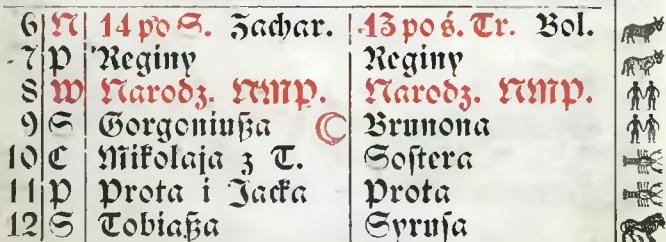 6 N 14 po S. Zachar. 13 po ś. Tr. Bol.
7 P Reginy Reginy
8 W Narodz. NMP. Narodz. NMP.
9 S Gorgoniuſza Brunona
10 C Mikołaja z T. Soſtera
11 P Prota i Jacka Prota
12 S Tobiaſza Syruſa